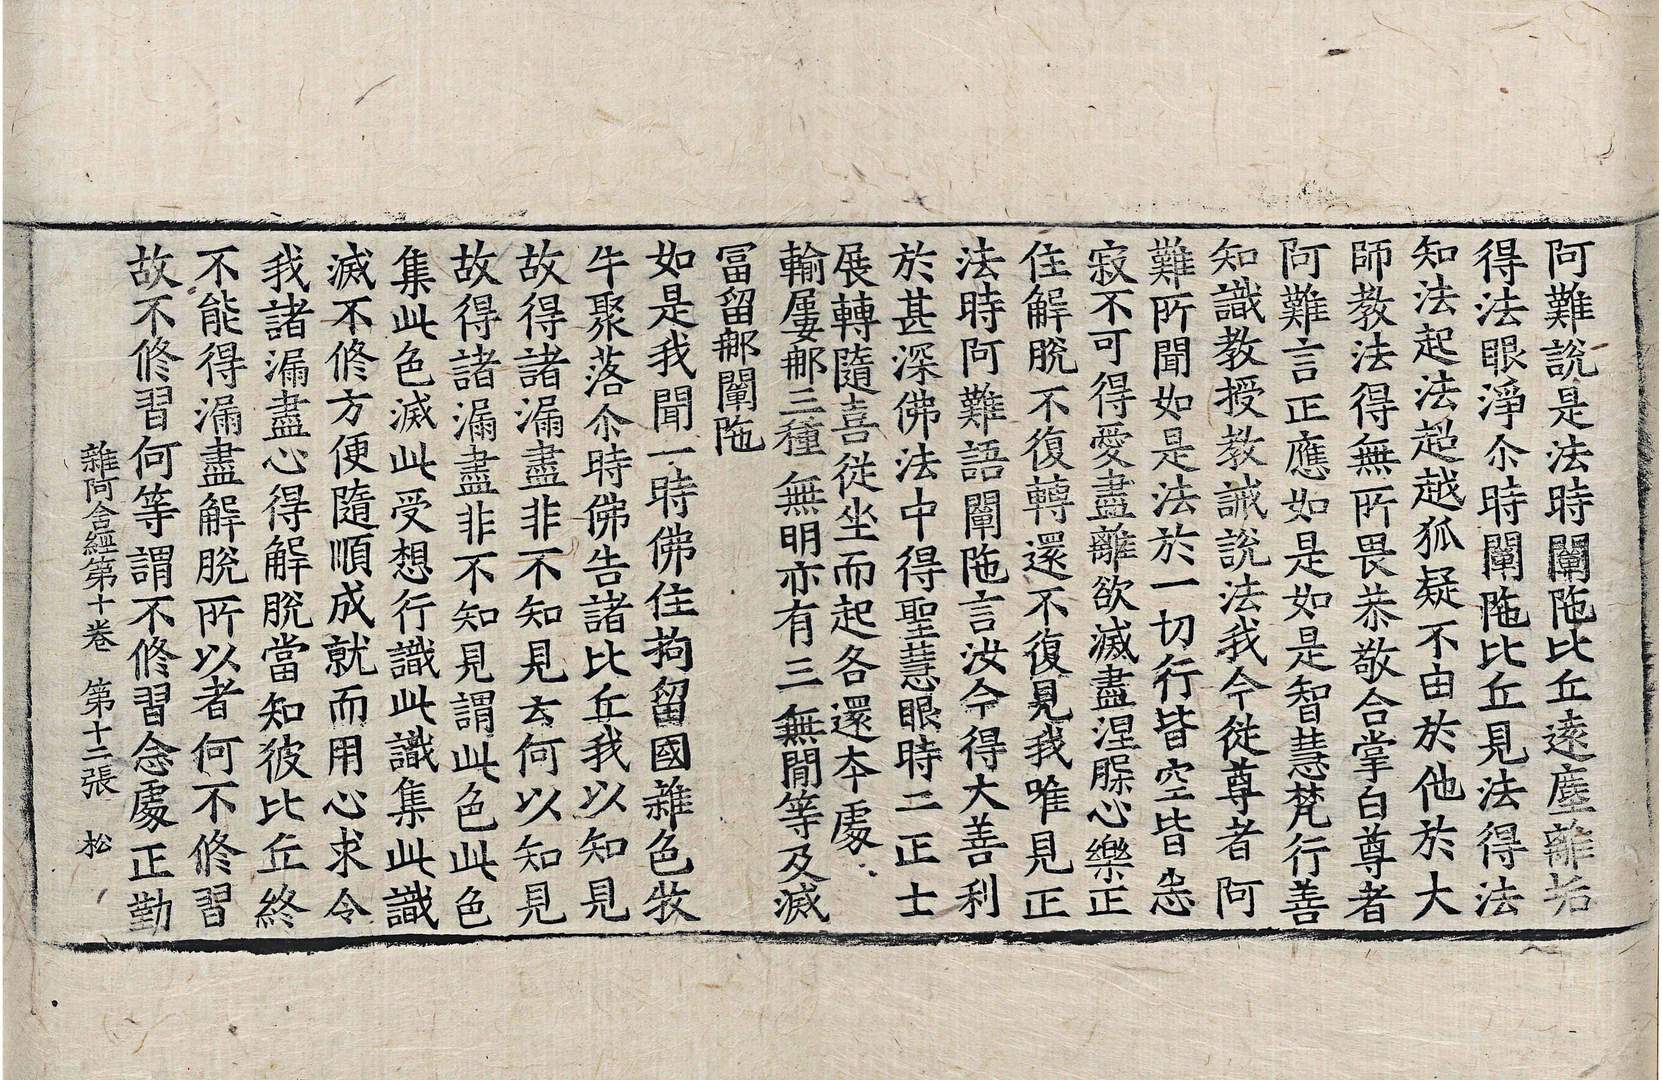 阿難說是法時闡陁比丘遠塵離垢
得法眼淨尒時闡陁比丘見法得法
知法起法超越狐疑不由於他於大
師教法得無所畏恭敬合掌白尊者
阿難言正應如是如是智慧梵行善
知識教授教誡說法我今從尊者阿
難所聞如是法於一切行皆空皆悉
寂不可得愛盡離欲滅盡涅槃心樂正
住解脫不復轉還不復見我唯見正
法時阿難語闡陁言汝今得大善利
於甚深佛法中得聖慧眼時二正士
展轉隨喜從坐而起各還本處
輸屢那三種 無明亦有三 無閒等及滅
冨留那闡陁
如是我聞一時佛住拘留國雜色牧
牛聚落尒時佛告諸比丘我以知見
故得諸漏盡非不知見云何以知見
故得諸漏盡非不知見謂此色此色
集此色滅此受想行識此識集此識
滅不修方便隨順成就而用心求令
我諸漏盡心得解脫當知彼比丘終
不能得漏盡解脫所以者何不修習
故不修習何等謂不修習念處正勤
雜阿含經第十卷 第十二張 松